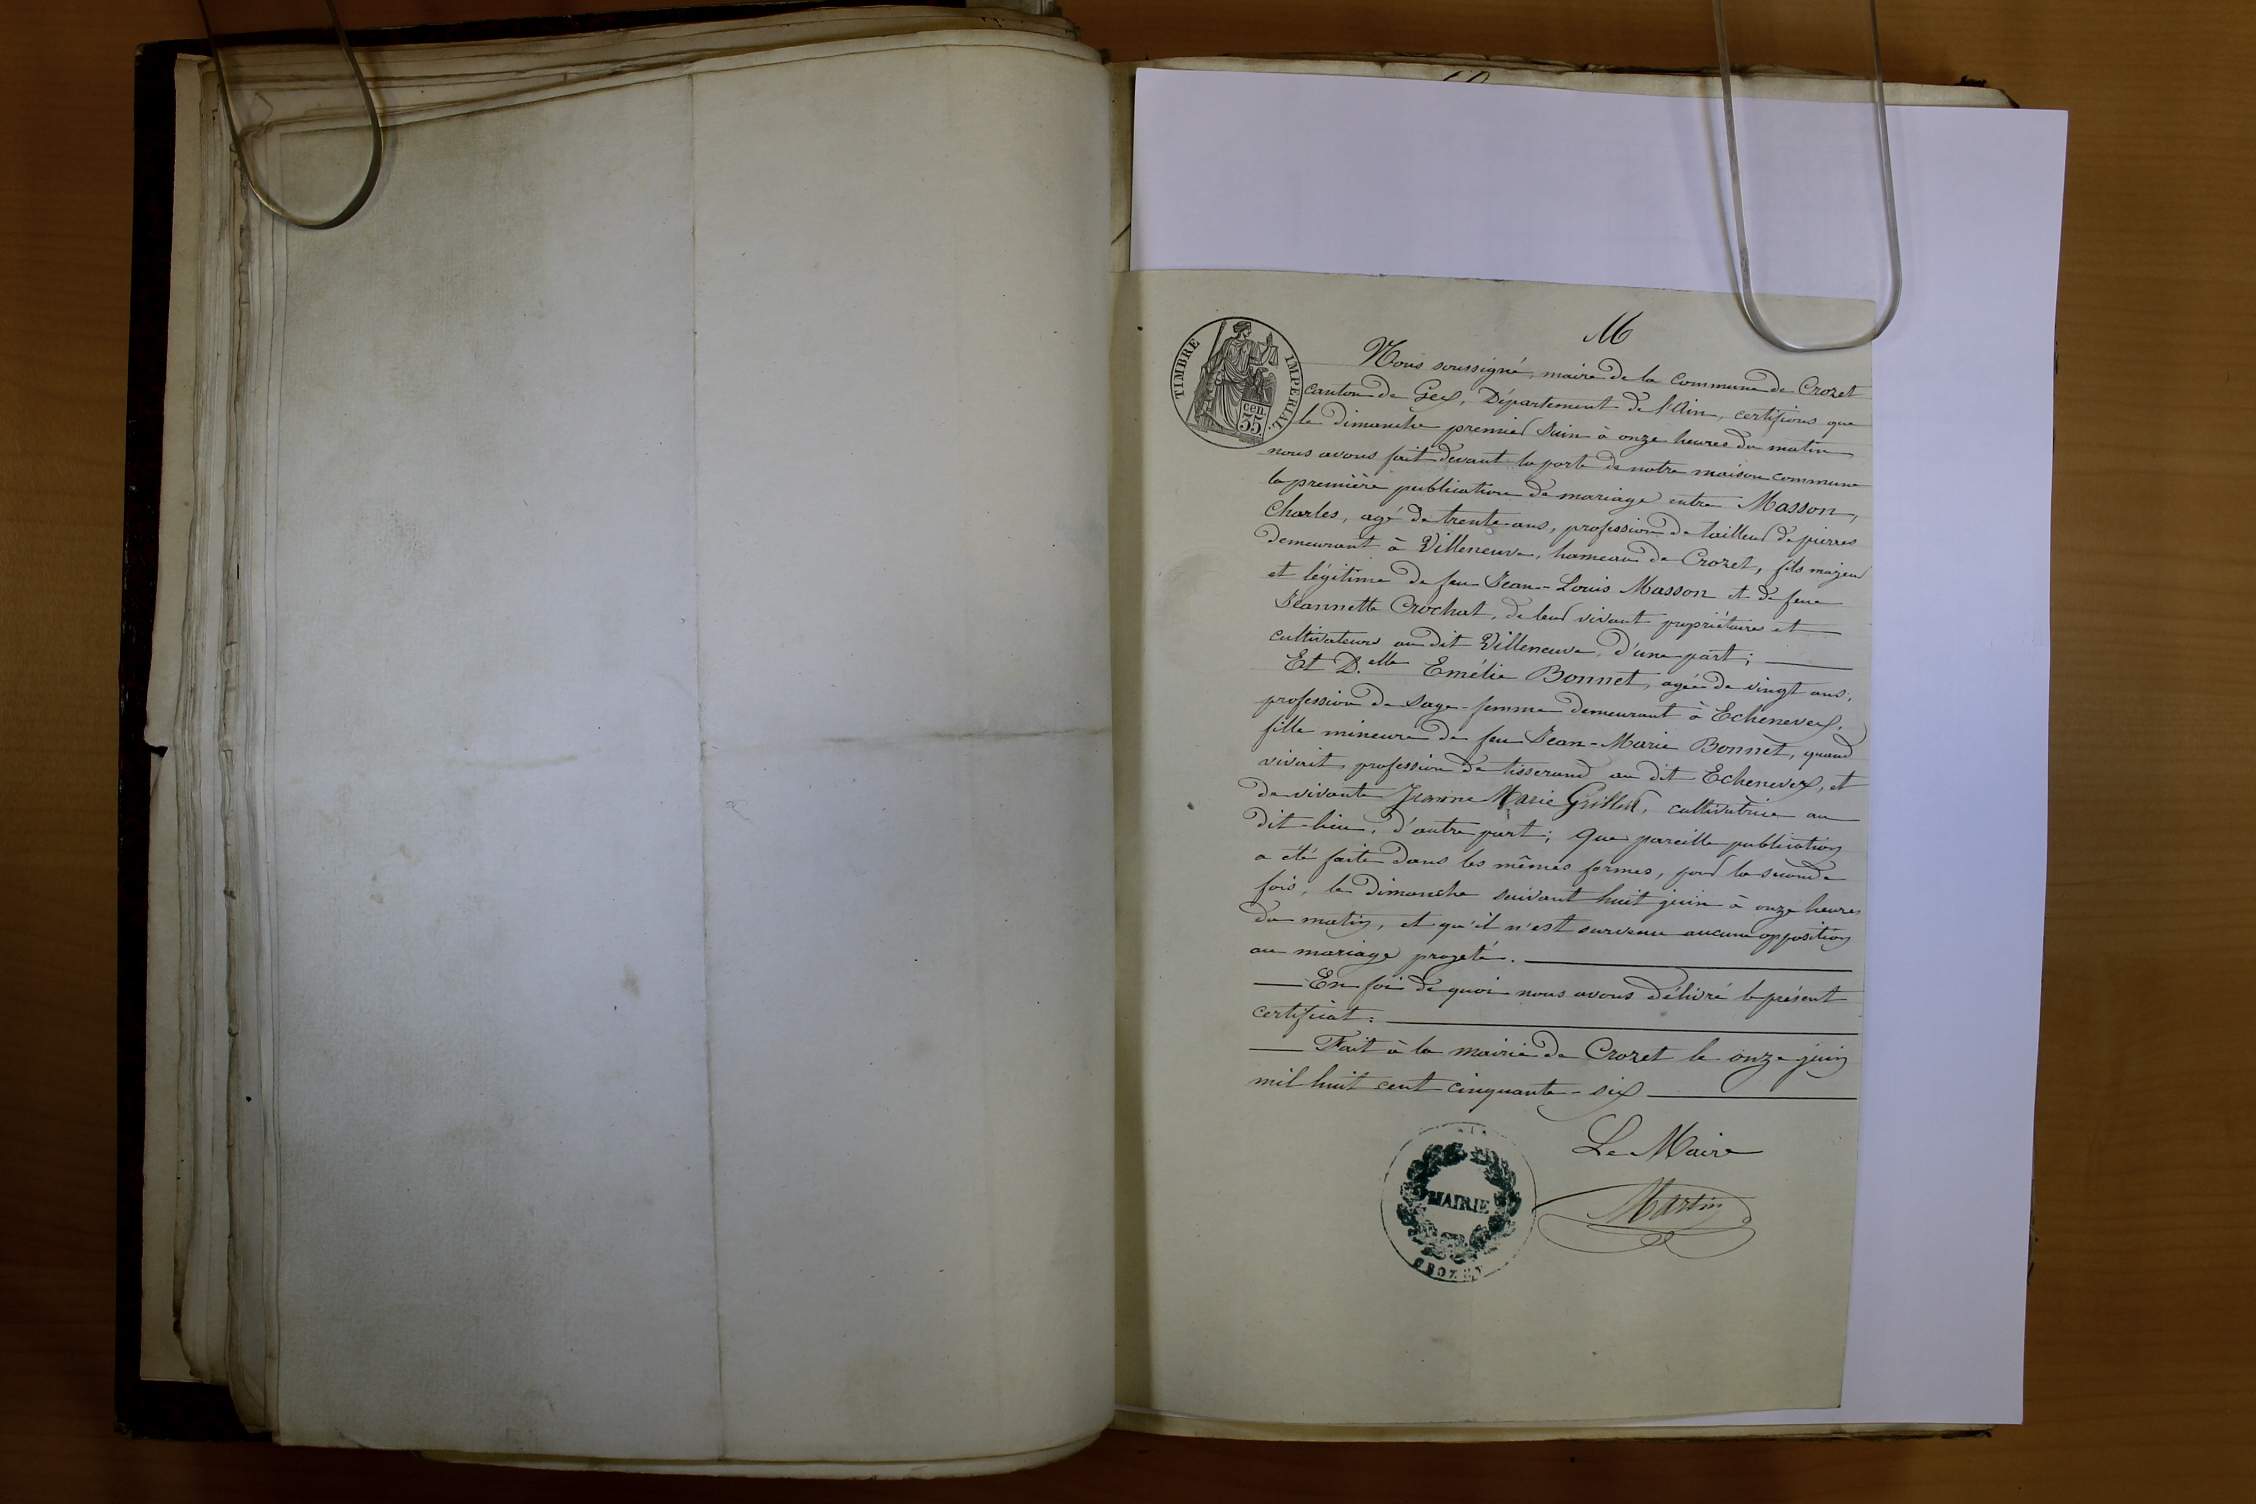 M
TIMBRE IMPERIAL
cen.
35.
Nous soussigné, maire de la commune de Crozet
canton de Gex, Département de l'Ain, certifions que
le dimanche premier Juin à onze heures du matin
nous avons fait devant la porte de notre maison commune
la première publication de mariage entre Masson,
Charles, agé de trente ans, profession de tailleur de pierres
demeurant à Villeneuve, hameau de Crozet, fils majeur
et légitime de feu Jean-Louis Masson et de feue
Jeannette Crochat, de leur vivant propriétaires et
cultivateurs au dit Villeneuve, d'une part;
Et D.elle Emélie Bonnet, agée de vingt ans,
profession de Sage-femme demeurant à Echenevex,
fille mineure de feu Jean-Marie Bonnet, quand
vivait, profession de tisserand au dit Echenevex, et
de vivante Jeanne Marie Grillet, cultivatrice au
dit-lieu, d'autre part; que pareille publication
a été faite dans les mêmes formes, pour la seconde
fois, le dimanche suivant huit juin à onze heures
du matin, et qu'il n'est survenu aucune opposition
au mariage projeté.
En foi de quoi nous avons délivré le présent
certificat.
Fait à la mairie de Crozet le onze juin
mil huit cent cinquante-six
Le Maire
MAIRIE
CROZET
Martin